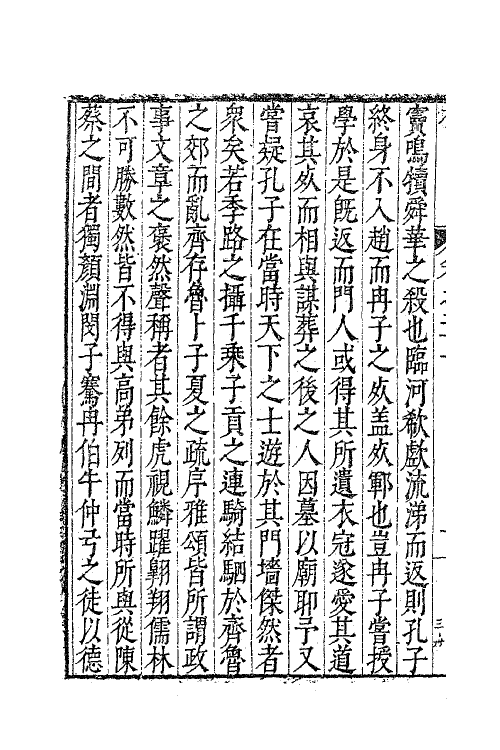 竇鳴犢舜華之殺也臨河欷歔流涕而返則孔子
終身不入趙而冉子之歿盖歿鄆也豈冉子嘗授
學於是旣返而門人或得其所遺衣冠遂愛其道
哀其歿而相與謀葬之後之人因墓以廟耶予又
嘗疑孔子在當時天下之士遊於其門墻傑然者
衆矣若季路之攝千乘子貢之連騎結駟於齊魯
之郊而亂齊存魯卜子夏之疏序雅頌皆所謂政
事文章之褎然聲稱者其餘虎視鱗躍翱翔儒林
不可勝數然皆不得與高弟列而當時所與從陳
蔡之間者獨顏淵閔子騫冉伯牛仲弓之徒以德